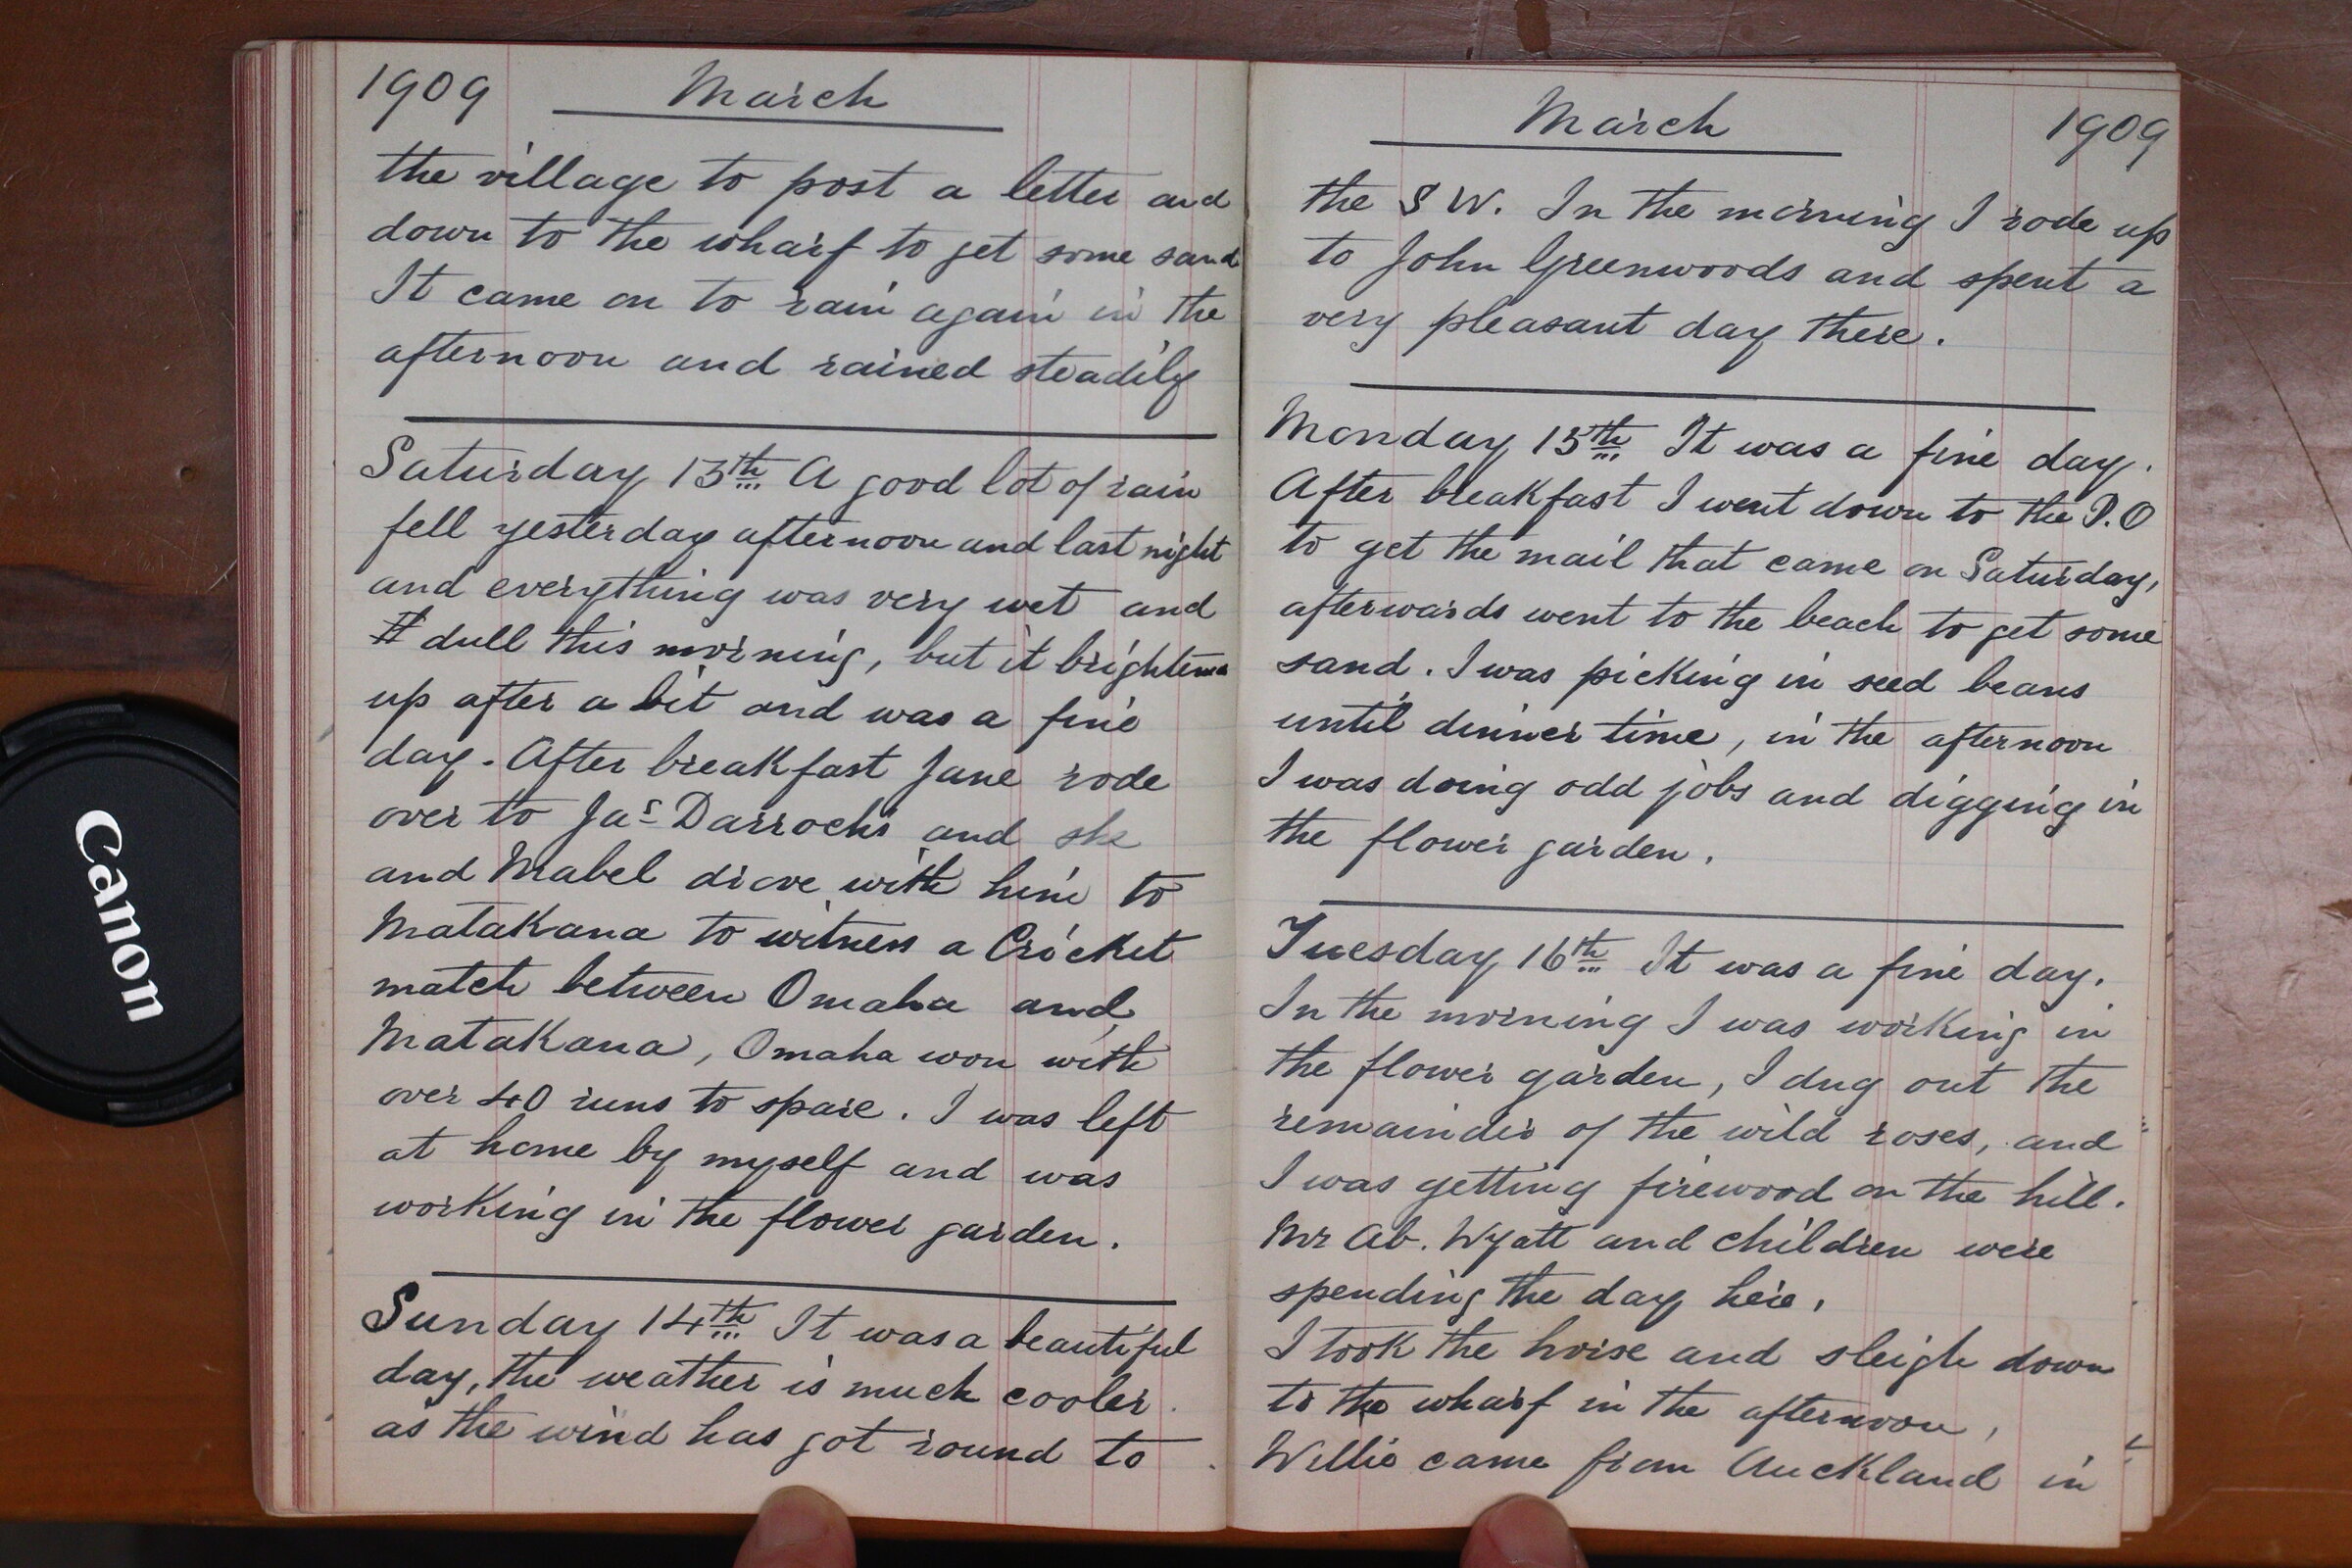 1909 March
the village to post a letter and
down to the wharf to get some sand
It came on to rain again in the
afternoon and rained steadily
Saturday 13th A good lot of rain
fell yesterday afternoon and last night
and everything was very wet and
dull this morning, but it brightened
up after a bit and was a fine
day. After breakfast Jane rode
over to Jas Darrochs and she
and Mabel drove with him to
Matakana to witness a Cricket
match between Omaha and
Matakana, Omaha won with
over 40 runs to spare. I was left
at home by myself and was
working in the flower garden.
Sunday 14th It was a beautiful
day, the weather is much cooler
as the wind has got round to
March 1909
the S W. In the morning I rode up
to John Greenwoods and spent a
very pleasant day there.
Monday 15th It was a fine day.
After breakfast I went down to the P.O
to get the mail that came on Saturday,
afterwards went to the beach to get some
sand. I was picking in seed beans
until dinner time, in the afternoon
I was doing odd jobs and digging in
the flower garden.
Tuesday 16th It was a fine day.
In the morning I was working in
the flower garden, I dug out the
remainder of the wild roses, and
I was getting firewood on the hill.
Mr Ab. Wyatt and children were
spending the day here.
I took the horse and sleigh down
to the wharf in the afternoon,
Willie came from Auckland in
Canon